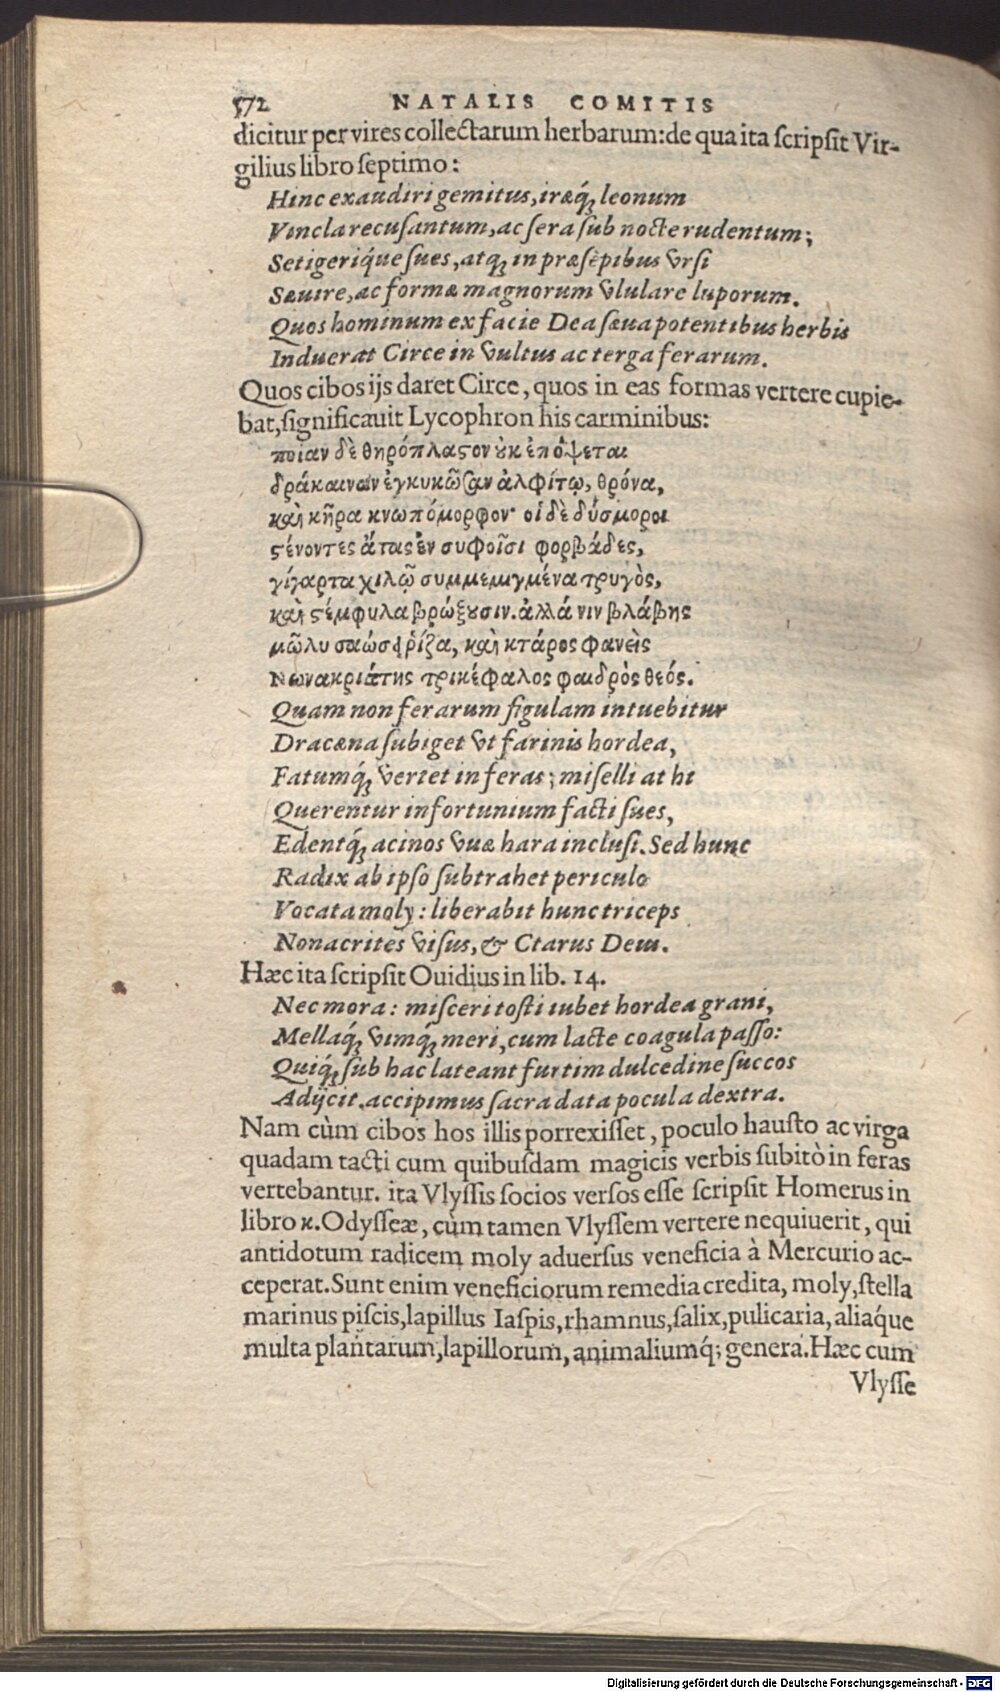 572 NATALIS COMITIS
dicitur per vires collectarum herbarum: de qua ita scripsit Vir-
gilius libro septimo:
Hinc exaudiri gemitus, iræq́; leonum
Vincla recusantum, ac sera sub nocte rudentum;
Setigeriq́ue sues, atq; in præsèpibus vrsi
Sæuire, ac formæ magnorum vlulare luporum.
Quos hominum ex facie Dea sæua potentibus herbis
Induerat Circe in vultus ac terga ferarum.
Quos cibos ijs daret Circe, quos in eas formas vertere cupie-
bat, significauit Lycophron his carminibus:
ποίαν δὲ θηρόπλαςον ȣκ ἐπόψεται
δράκαιναν ἐγκυκῶσαν ἀλφίτῳ, θρόνα,
καὶ κῆρα κνωπόμορφον· οἱ δὲ δύσμοροι
ςένοντες ἄτας ἐν συφοῖσι φορβάδες,
γίγαρτα χιλῷ συμμεμιγμένα τρυγὸς,
καὶ ςέμφυλα βρώξȣσιν. ἀλλά νιν βλάβης
μῶλυ σαώσει ῥίζα, καὶ κτάρος φανεὶς
Νωνακριάτης τρικέφαλος φαιδρὸς θεός.
Quam non ferarum figulam intuebitur
Dracæna subiget vt farinis hordea,
Fatumq́; vertet in feras; miselli at hi
Querentur infortunium facti sues,
Edentq́; acinos vuæ hara inclusi. Sed hunc
Radix ab ipso subtrahet periculo
Vocata moly: liberabit hunc triceps
Nonacrites visus, & Ctarus Deus.
Hæc ita scripsit Ouidius in lib. 14.
Nec mora: misceri tosti iubet hordea grani,
Mellaq́; vimq́; meri, cum lacte coagula passo:
Quiq́; sub hac lateant furtim dulcedine succos
Adijcit. accipimus sacra data pocula dextra.
Nam cùm cibos hos illis porrexisset, poculo hausto ac virga
quadam tacti cum quibusdam magicis verbis subitò in feras
vertebantur. ita Vlyssis socios versos esse scripsit Homerus in
libro κ. Odysseæ, cùm tamen Vlyssem vertere nequiuerit, qui
antidotum radicem moly aduersus veneficia à Mercurio ac-
ceperat. Sunt enim veneficiorum remedia credita, moly, stella
marinus piscis, lapillus Iaspis, rhamnus, salix, pulicaria, aliaq́ue
multa plantarum, lapillorum, animaliumq́; genera. Hæc cum
Vlysse
Digitalisierung gefördert durch die Deutsche Forschungsgemeinschaft - DFG